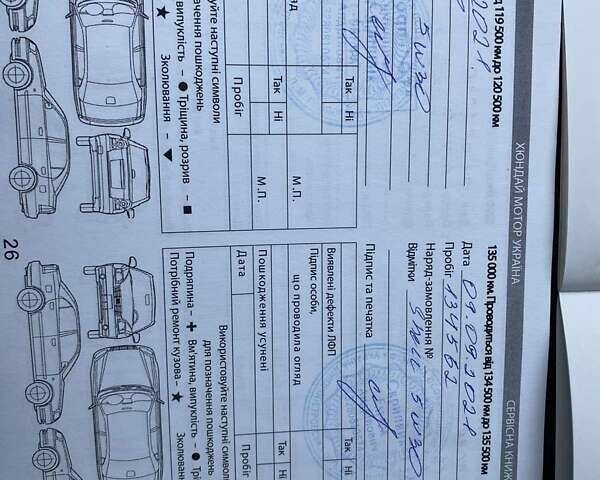 ХЮНДАЙ МОТОР УКРАЇНА
СЕРВІСНА КНИЖ
119 500 км до 120 500 км
5W30
Так
Ні
Так
Ні
Пробіг
М.П.
М.П.
уйте наступні символи
ачення пошкоджень
випуклість – ● Тріщина, розрив – ■
★ Зколювання – ▼
26
135 000 км. Проводиться від 134 500 км до 135 500 км
Дата
Пробіг 134552
Наряд-замовлення №
Відмітки Shell 5W30
Підпис та печатка
Виявлені дефекти ЛФП
Так
Ні
Підпис особи,
що проводила огляд
Пошкодження усунені
Так
Ні
Дата
Пробіг
Використовуйте наступні символи
для позначення пошкоджень
Подряпина – + Вм'ятина, випуклість – ● Трі
Потрібний ремонт кузова – ★ Зколюван